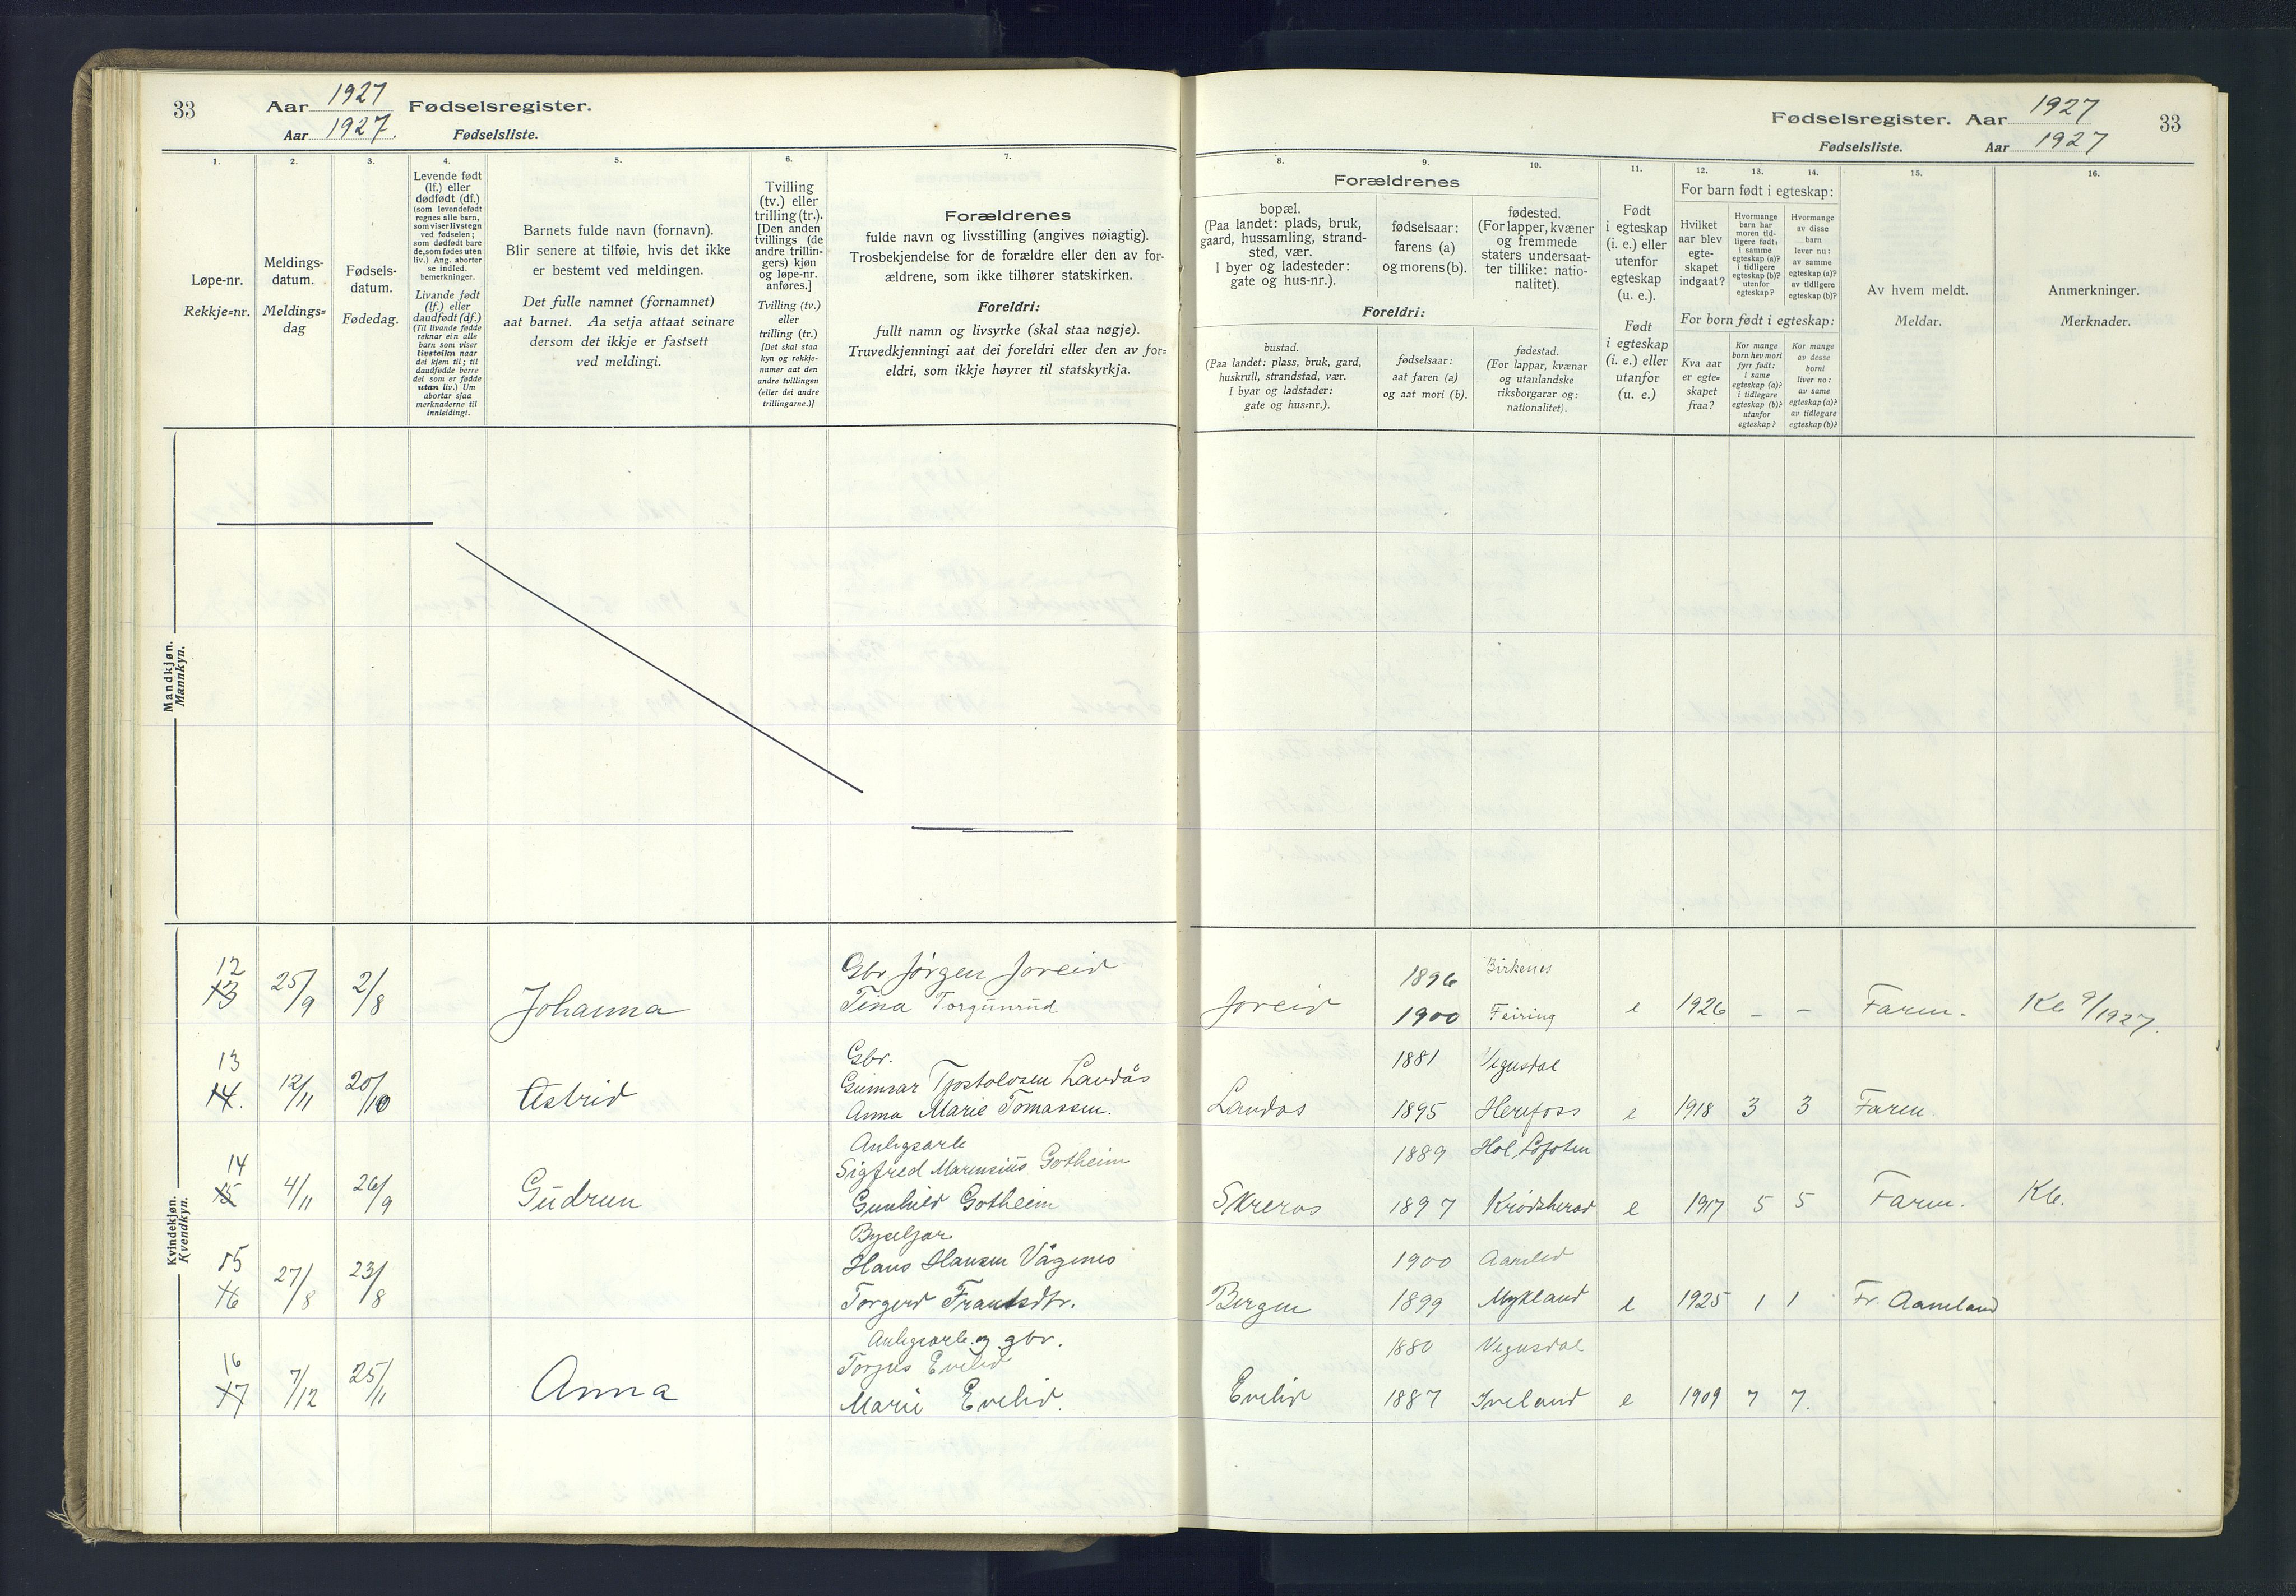 33
Aar 1927 Fødselsregister.
Aar 1927. Fødselsliste.
1.
2.
3.
4.
5.
6.
7.
Løpe-nr.
Rekkje=nr.
Meldings-
datum.
Meldings=
dag
Fødsels-
datum.
Fødedag.
Levende født
(lf.) eller
dødfødt (df.)
(som levendefødt
regnes alle barn,
som viser livstegn
ved fødselen;
som dødfødt bare
de, som fødes uten
liv.) Ang. aborter
se indled.
bemerkninger.
Livande født
(lf.) eller
daudfødt (df.)
(Til livande fødde
reknar ein alle
barn som viser
livsteikn naar
dei kjem til; til
daudfødde berre
dei som er fødde
utan liv.) Um
abortar sjaa
merknaderne til
innleidingi.
Barnets fulde navn (fornavn).
Blir senere at tilføie, hvis det ikke
er bestemt ved meldingen.
Det fulle namnet (fornamnet)
aat barnet. Aa setja attaat seinare
dersom det ikkje er fastsett
ved meldingi.
Tvilling
(tv.) eller
trilling (tr.).
[Den anden
tvillings (de
andre trillin-
gers) kjøn
og løpe-nr.
anføres.]
Tvilling (tv.)
eller
trilling (tr.)
[Det skal staa
kyn og rekkje-
numer aat den
andre tvillingen
(eller dei andre
trillingarne.)]
Forældrenes
fulde navn og livsstilling (angives nøiagtig).
Trosbekjendelse for de forældre eller den av for-
ældrene, som ikke tilhører statskirken.
Foreldri:
fullt namn og livsyrke (skal staa nøgje).
Truvedkjenningi aat dei foreldri eller den av for=
eldri, som ikkje høyrer til statskyrkja.
Mandkjøn.
Mannkyn.
Kvindekjøn.
Kvendkyn.
12
13
25/9
2/8
Johanna
Gbr. Jørgen Joreid
Tina Torgunrud
13
14.
12/11
20/10
Astrid
Gbr.
Gunnar Tjostolvsen Landås
Anna Marie Tomassen.
14
15
4/11
26/9
Gudrun
Anlegsarb
Sigfred Marensius Gotheim
Gunhild Gotheim
15
16
27/8
23/8
Hans Hansen Vågsnes
Torgerd Frantsdtr.
16
17
7/12
25/11
Anna
Anlegsarb. og gbr.
Torjus Evelid
Marie Evelid.
Fødselsregister. Aar 1927
Fødselsliste. Aar 1927
33
8.
9.
10.
11.
12.
13.
14.
15.
16.
Forældrenes
bopæl.
(Paa landet: plads, bruk,
gaard, hussamling, strand-
sted, vær.
I byer og ladesteder:
gate og hus-nr.).
fødselsaar:
farens (a)
og morens (b).
fødested.
(For lapper, kvæner
og fremmede
staters undersaat-
ter tillike: natio-
nalitet).
Foreldri:
bustad.
(Paa landet: plass, bruk, gard,
huskrull, strandstad, vær.
I byar og ladstader:
gate og hus=nr.).
fødselsaar:
aat faren (a)
og aat mori (b).
fødestad.
(For lappar, kvænar
og utanlandske
riksborgarar og:
nationalitet).
Født
i egteskap
(i. e.) eller
utenfor
egteskap
(u. e.).
Født
i egteskap
(i. e.) eller
utanfor
(u. e.)
For barn født i egteskap:
Hvilket
aar blev
egte-
skapet
indgaat?
Hvormange
barn har
moren tid-
ligere født:
i samme
egteskap (a)?
i tidligere
egteskap (b)?
utenfor
egteskap?
Hvormange
av disse
barn
lever nu:
av samme
egteskap (a)?
av tidligere
egteskap (b)?
For born født i egteskap:
Kva aar
er egte=
skapet
fraa?
Kor mange
born hev mori
fyrr født:
i same
egteskap (a)?
i tidlegare
egteskap (b)?
utanfor
egteskap?
Kor mange
av desse
borni
liver no:
av same
egteskap (a)?
av tidlegare
egteskap (b)?
Av hvem meldt.
Meldar.
Anmerkninger.
Merknader.
1896 Birkenes
Joreid 1900 Feiring e 1926 – – Faren. Kb 9/1927.
1881 Vegusdal
Landås 1895 Herefoss e 1918 3 3 Faren.
1889 Hol Lofoten
Skreros 1897 Krødsherad e 1917 5 5 Faren. Kb.
1900
Bergen 1899 Mykland e 1925 1 1 Fr. Aamland
1880 Vegusdal
Evelid 1887 Iveland e 1909 7 7.